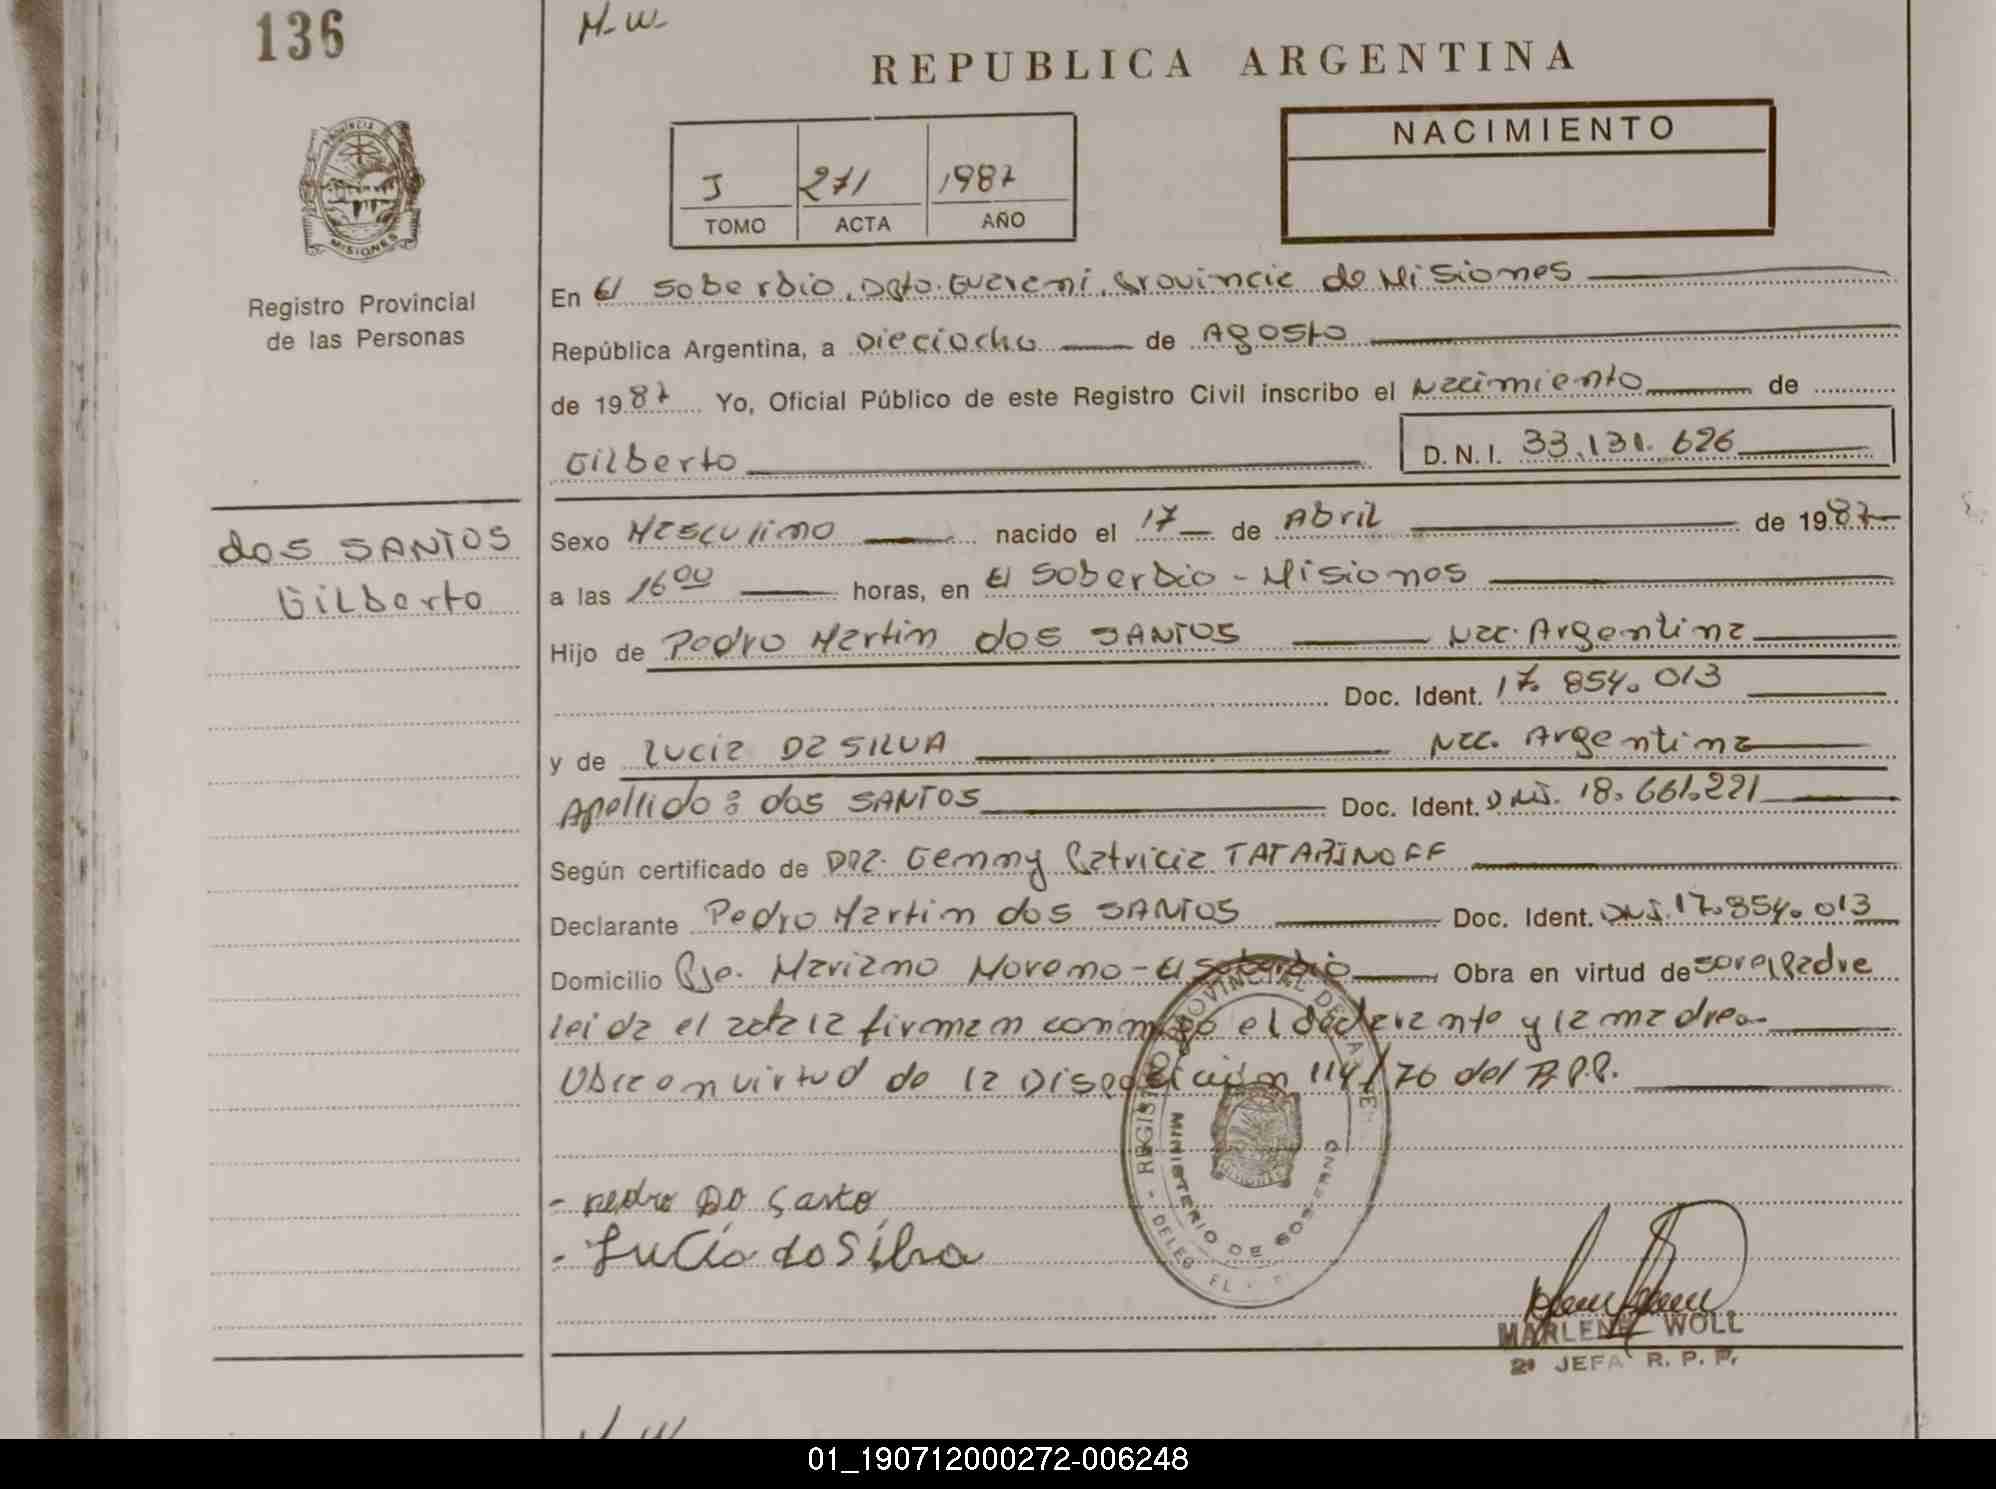 136
M-W-
REPUBLICA ARGENTINA
PROVINCIA
MISIONES
Registro Provincial
de las Personas
J 271 1987
TOMO ACTA AÑO
NACIMIENTO
En El Soberbio, Dpto. Guarani, Provincia de Misiones
República Argentina, a Dieciocho de Agosto
de 1987 Yo, Oficial Público de este Registro Civil inscribo el Nacimiento de
Gilberto D. N. I. 33.131.626
dos SANTOS
Gilberto
Sexo Masculino nacido el 17 de Abril de 1987
a las 16 00 horas, en El Soberbio - Misiones
Hijo de Pedro Martin dos SANTOS Nac. Argentina
Doc. Ident. 17.854.013
y de Lucia Da SILVA Nac. Argentina
Apellido: dos SANTOS Doc. Ident. DNI. 18.661.221
Según certificado de Dra. Gemmy Patricia TATARINOFF
Declarante Pedro Martin dos SANTOS Doc. Ident. DNI. 17.854.013
Domicilio Pje. Mariano Moreno - El Soberbio Obra en virtud de ser el Padre
leida el acta la firman conmigo el declarante y la madre.-
Obra en virtud de la Disposición 114/76 del R.P.P.
REGISTRO PROVINCIAL DE LAS PE
MINISTERIO DE GOBIERNO
DELEG EL
- pedro DO Santo
- Lucía da Silva
MARLENE WOLL
2ª JEFA R. P. P.
01_190712000272-006248